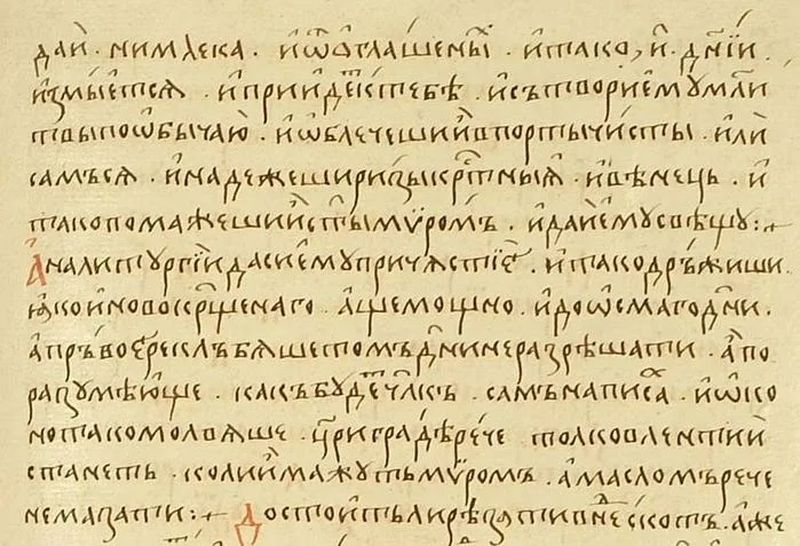 даи҆ · ни млека · и҆ ѿ ѡ҆глашены̑ · и҆ тако, и҃ · дн҃їи ·
измыетсѧ · и҆ приидеⷮ к тебѣ · и҆ сътвори е҆мѹ мл҃и
твы по ѡ҆бычаю҆ · и҆ ѡ҆блечеши и҆ в порты чисты · и҆ли
самъ сѧ · и҆ надежеши ризы крⷭ҇тныꙗ · и҆ вѣнець · и҆
тако помажеши и҆ ст҃ымъ мѵромъ · и҆ даи е҆мѹ свѣщѹ :~
А҆ на литѹргїи даси е҆мѹ причѧстїе · и҆ тако дръжиши ·
ꙗ҆ко и новокрⷭ҇щенаго · а҆ще мощно · и҆ до ѡ҆смаго дн҃и ·
а҆ пръвое реклъ бѧше томъ дн҃и не разрѣшати · а҆ по
разѹмѣю҆ще · какъ бѹдеⷮ чл҃къ · самъ написа · и҆ ѿко
но тако молвѧше · цр҃и градѣ рече толко влентїи
станеть · коли и҆ мажѹть мѵромъ · а҆ масломъ рече
не мазати :~ Достоить ли рѣзѧти в нд҃ю скотъ · а҆же